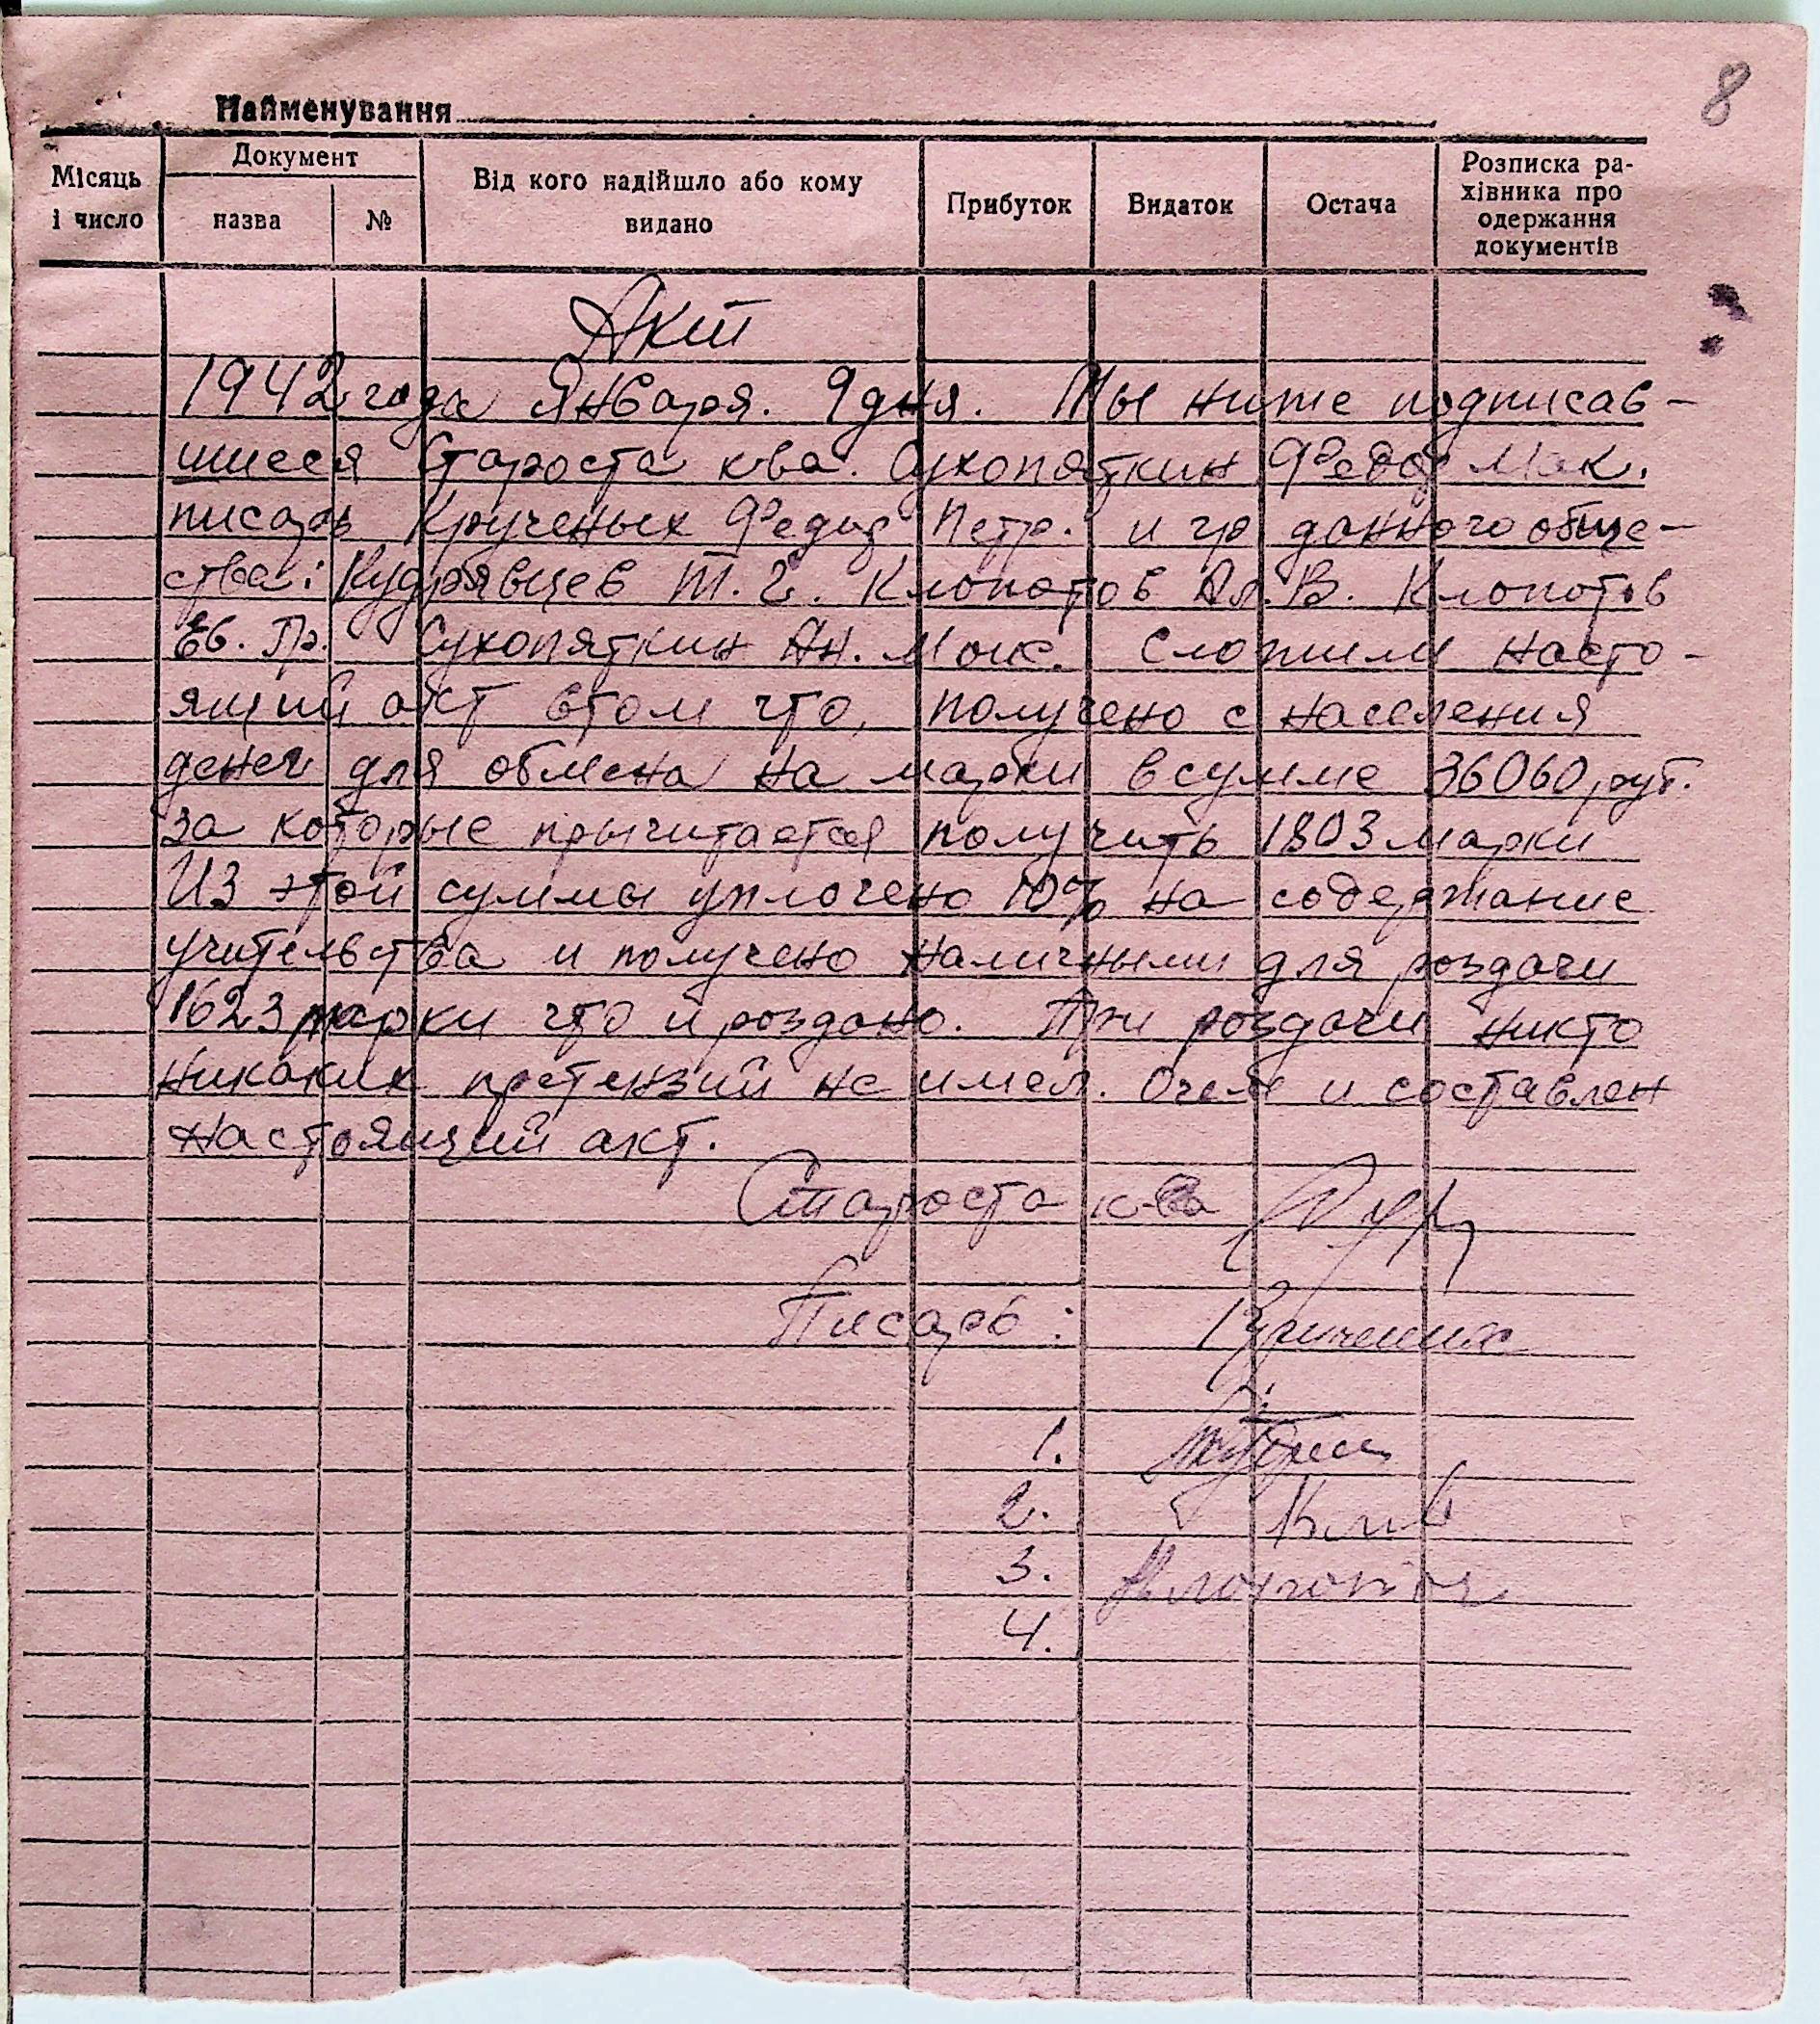 8
Найменування
Місяць і число
Документ
назва
№
Від кого надійшло або кому видано
Прибуток
Видаток
Остача
Розписка ра-
хівника про
одержання
документів
Акт
1942 года Января. 9 дня. Мы ниже подписав-
шиеся Староста к-ва. Сухопяткин Федор Мак.
писарь Крученых Федор Петр. и гр данного обще-
ства: Кудрявцев Т. Г. Клопотов Ал. В. Клопотов
Ев. Гр. Сухопяткин Ан. Моис. Сложили насто-
ящий акт втом что, получено с населения
денег для обмена на марки в сумме 36060 руб.
за которые прычитается получить 1803 марки
Из этой суммы уплочено 10% на содержание
учительства и получено наличными для роздачи
1623 марки что и роздано. При роздачи никто
никаких претензий не имел. Очем и составлен
настоящий акт.
Староста к-ва
Писарь: Крученых
1.
2.
3. Клопотов
4.